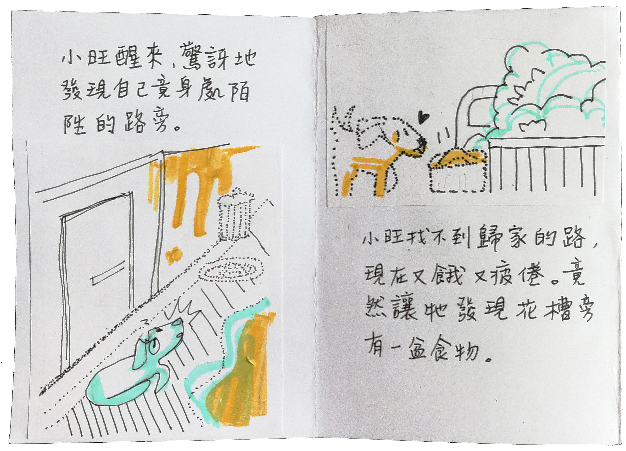 小旺醒來,驚訝地
發現自己竟身處陌
陌的路旁。
小旺找不到歸家的路,
現在又餓又疲倦。竟
然讓牠發現花槽旁
有一盆食物。